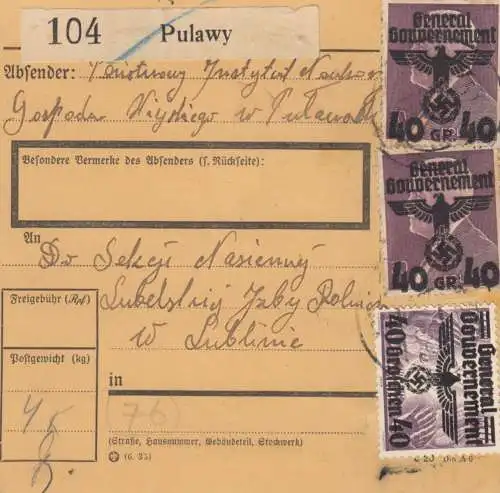 104 Pulawy
Absender: Instytut
Gospodar Wiejskiego w Puławach
Besondere Vermerke des Absenders (s. Rückseite):
An
Do Sekcji Nasiennej
Lubelskiej Izby Rolnic
w Lublinie
Freigebühr (Rℳ)
Postgewicht (kg)
in
76
(Straße, Hausnummer, Gebäudeteil, Stockwerk)
(6. 35)
General
Gouvernement
40 GR. 40
General
Gouvernement
40 GR. 40
General
Gouvernement
40 Groschen 40